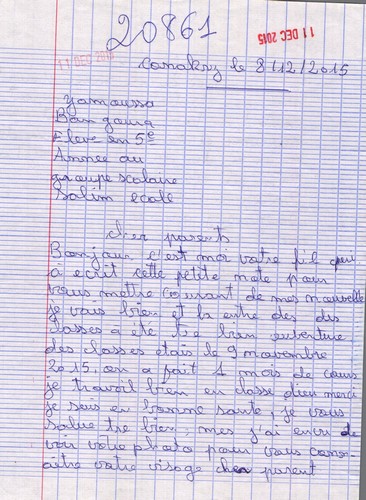 20861
11 DEC 2015
11 DEC 201
Conakry le 8/12/2015
yamoussa
Bangoura
Eleve en 5e
Année du
groupe scolaire
Salim ecole
cher parents
Bonjour c'est moi votre fil qui
à ecrit cette petite note pour
vous mettre courant de mes nouvelle
je vous bien et la entre des
classes a été tre bien ouverture
des classes etais le 9 novembre
2015, on a fait 1 mois de cours
je travail bien en classe dieu merci
je suis en bonne sante, je vous
salue tre bien, mes j'ai envi de
voir votre photo pour vous conn-
aitre votre visage cher parent